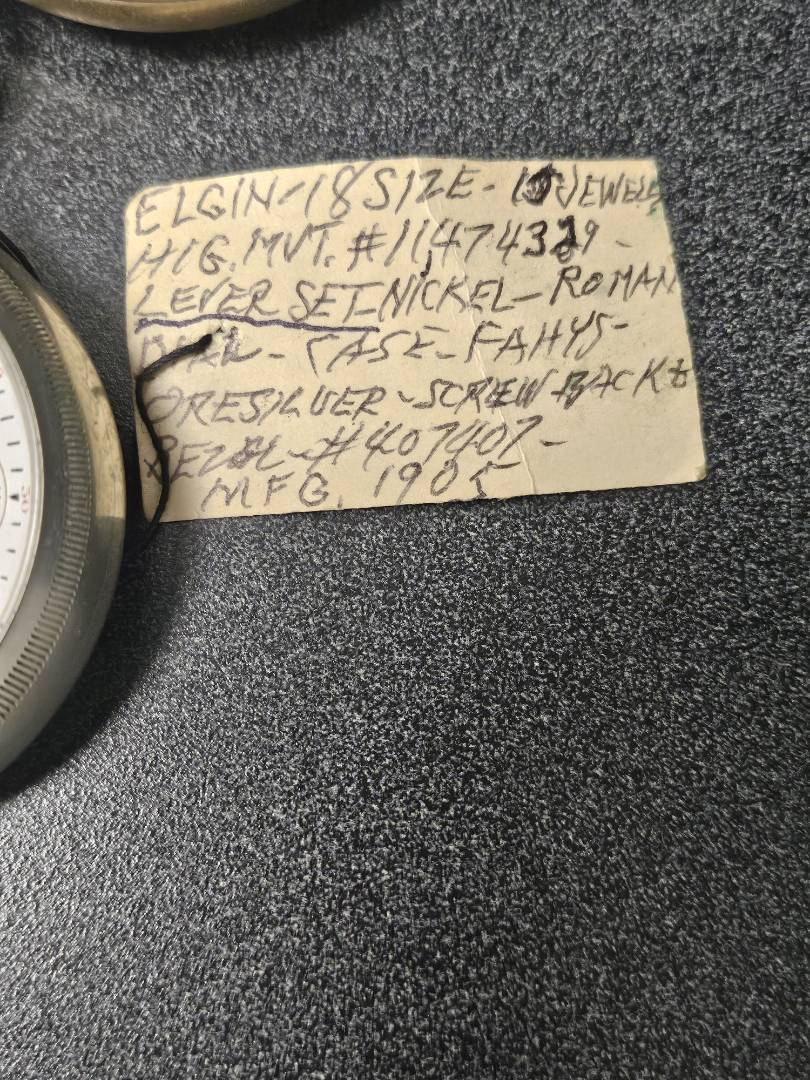 ELGIN-18 SIZE- 15 JEWELS
HIG. MVT. #11,474329-
LEVER SET-NICKEL-ROMAN
DIAL- CASE-FAHYS-
ORESILVER-SCREW BACK &
BEZEL-#407407-
MFG. 1905
30